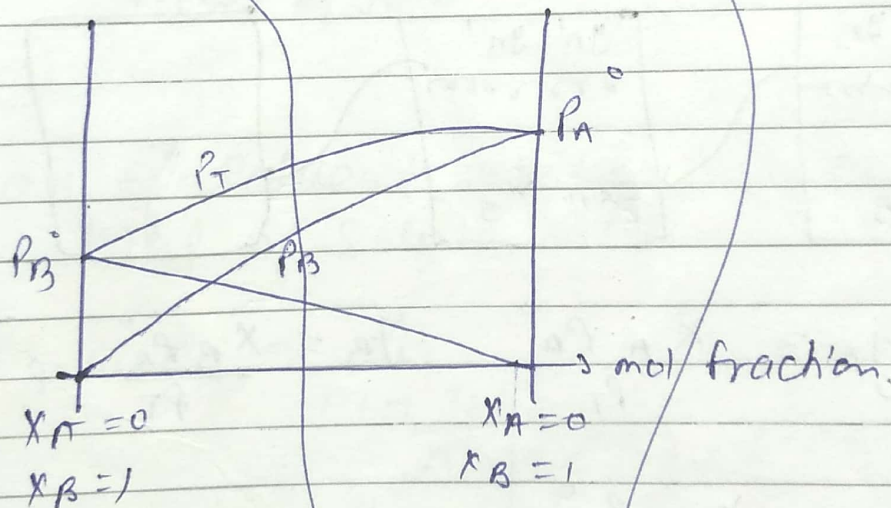 P°A
PT
P°B
PB
→ mol fraction.
XA = 0
XB = 1
XA = 0
XB = 1